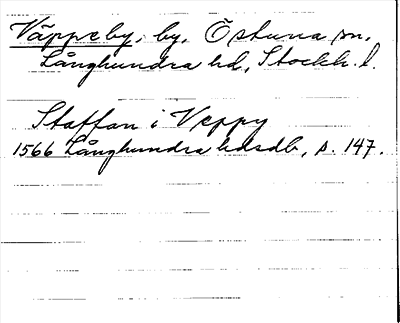 Väppeby, by, Östuna sn,
Långhundra hd, Stockh. l.
Staffan i Veppy
1566 Långhundra hdsdb, s. 147.